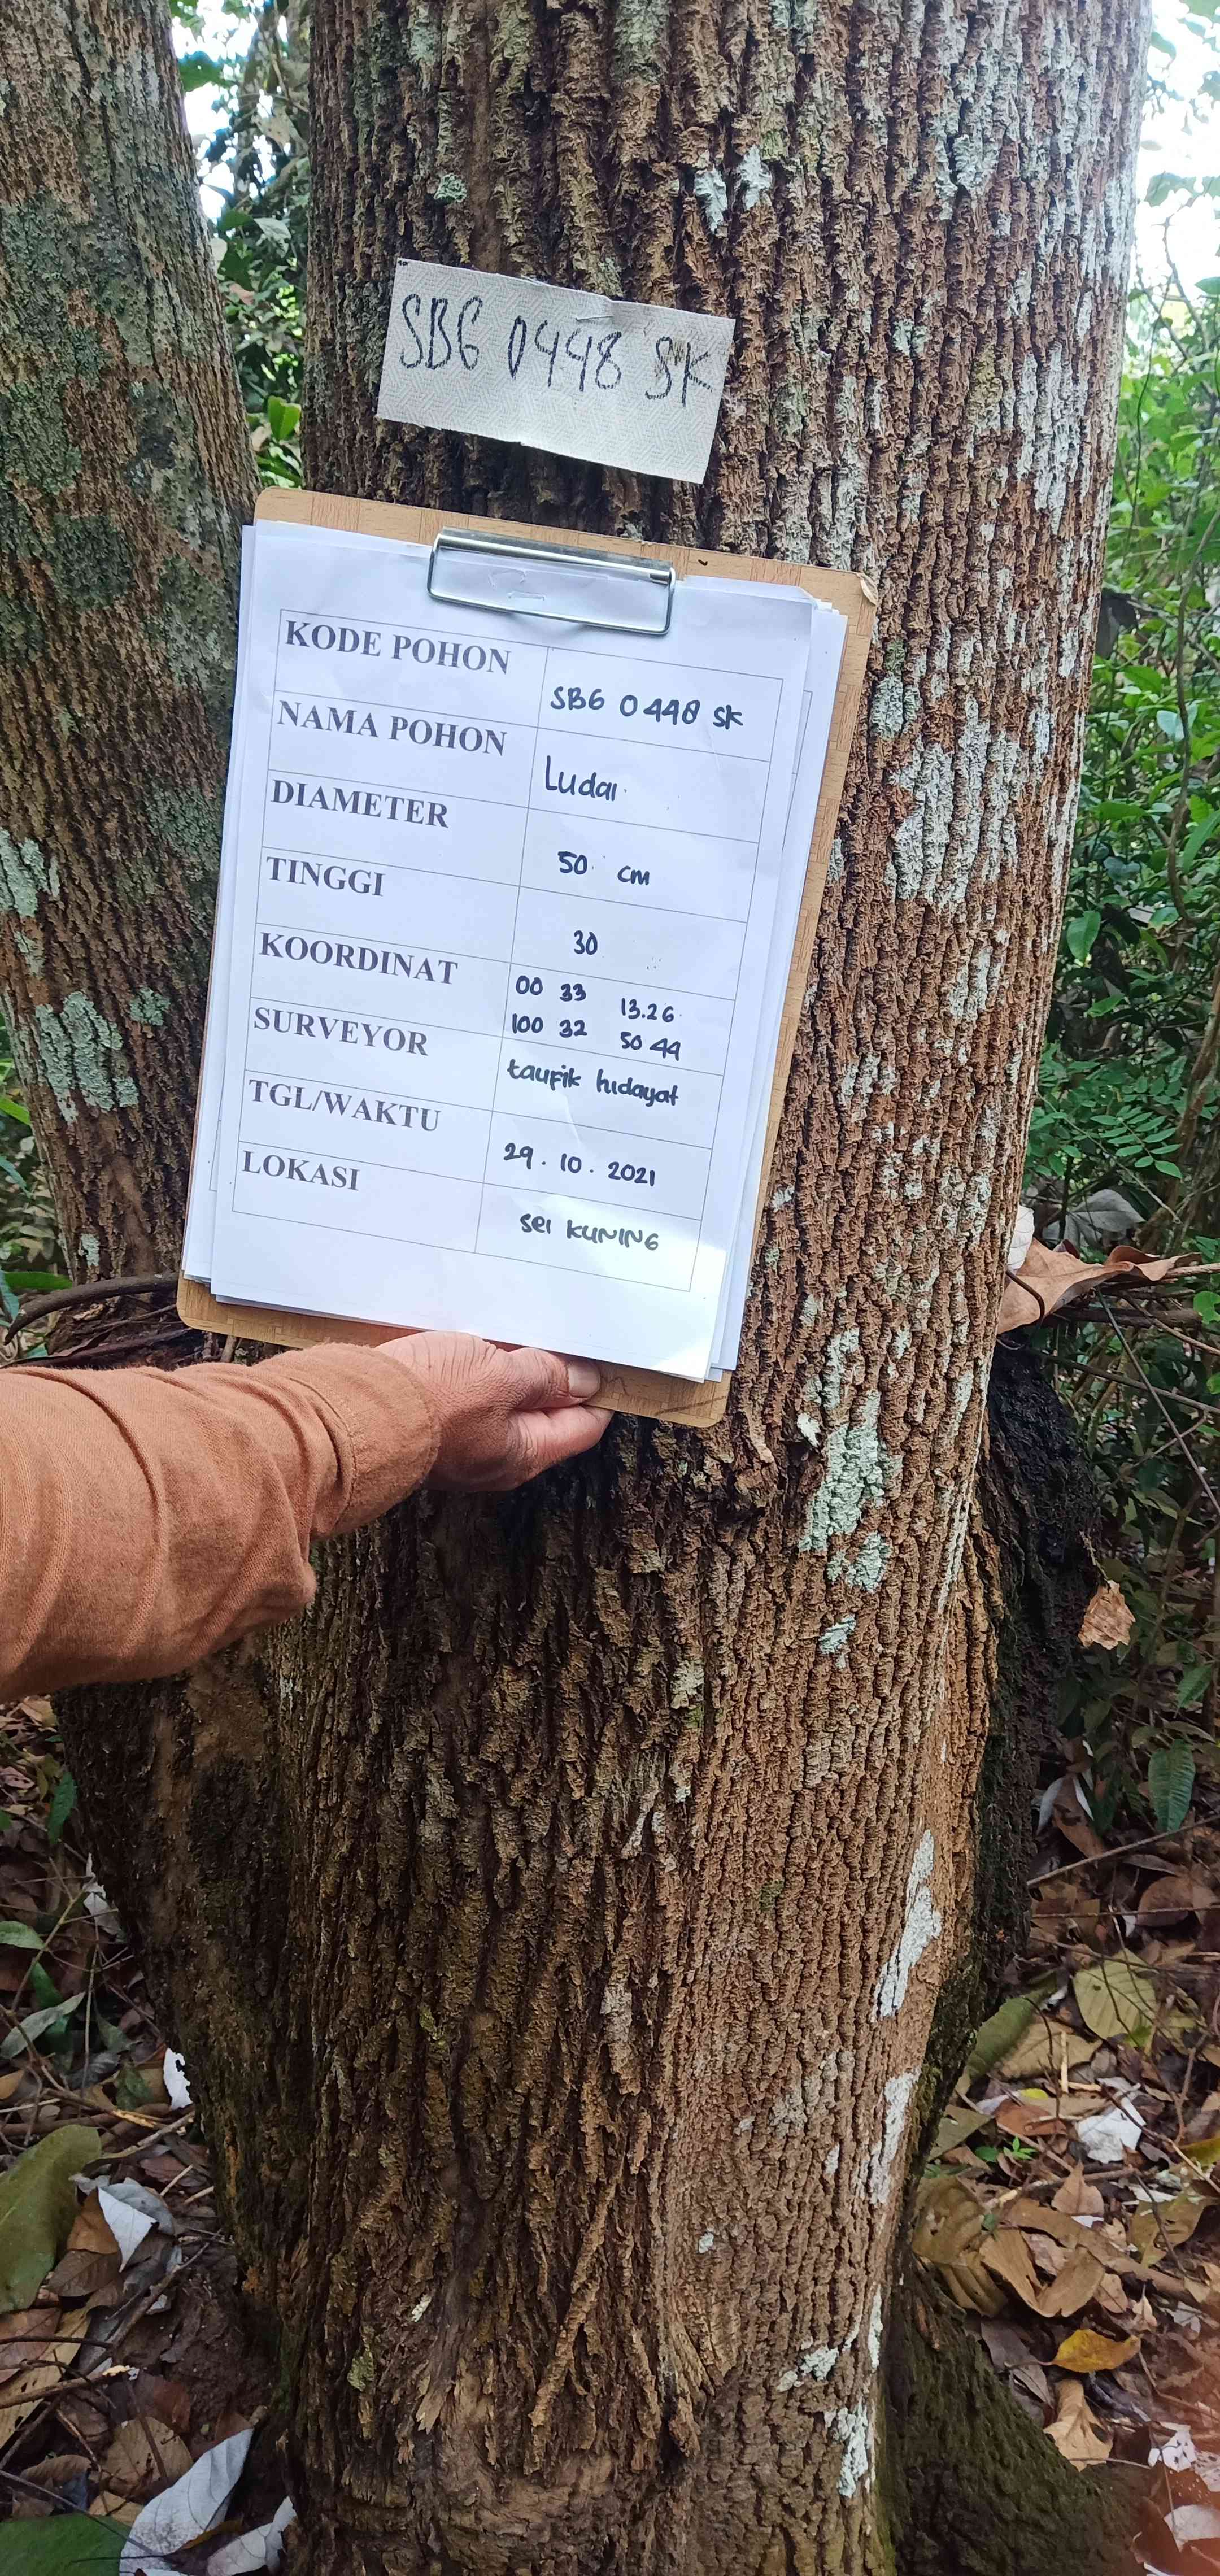 SBG 0448 SK
KODE POHON SBG 0448 SK
NAMA POHON Ludai
DIAMETER 50 cm
TINGGI 30
KOORDINAT 00 33 13.26
100 32 50 44
SURVEYOR taufik hidayat
TGL/WAKTU 29.10.2021
LOKASI sei KUNING